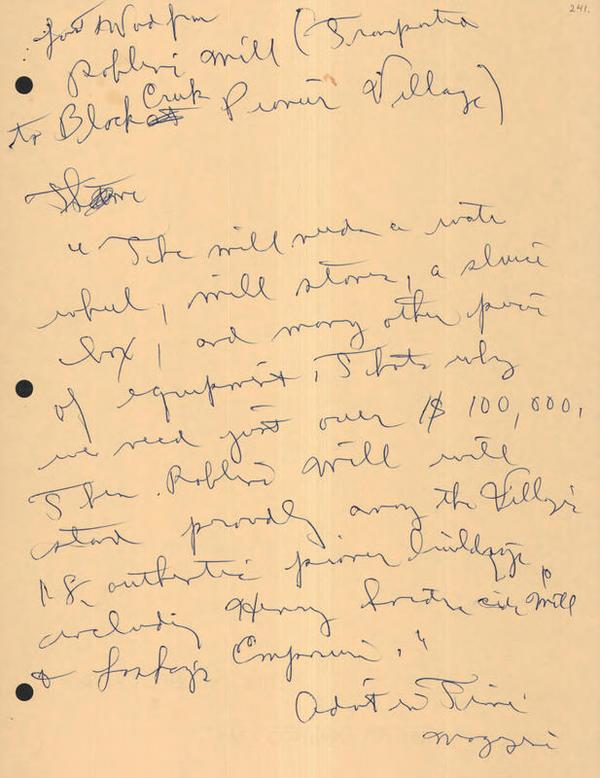 241.
Last Word from
Roblin's Mill (Transported
to Black Creek Pioneer Village)
"The mill needs a water
wheel, mill stones, a sluice
box, and many other pieces
of equipment. That's why
we need just over $100,000.
Then Roblin's Mill will
stand proudly among the Village's
18 authentic pioneer buildings,
including Henry cider mill
& Laskay's Emporium."
Ad in Time
Magazine